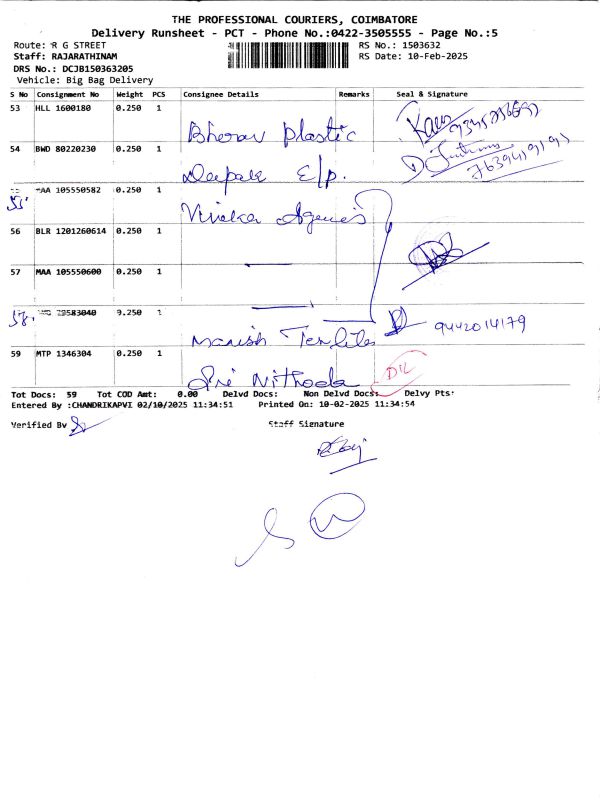 THE PROFESSIONAL COURIERS, COIMBATORE
Delivery Runsheet - PCT - Phone No.:0422-3505555 - Page No.:5
Route: R G STREET
RS No.: 1503632
Staff: RAJARATHINAM
RS Date: 10-Feb-2025
DRS No.: DCJB150363205
Vehicle: Big Bag Delivery
S No Consignment No Weight PCS Consignee Details Remarks Seal & Signature
53 HLL 1600180 0.250 1
Plastic
54 BWD 80220230 0.250 1
Deepak E/p. 7639419191
55 MAA 105550582 0.250 1
Agencies
56 BLR 1201260614 0.250 1
57 MAA 105550600 0.250 1
58. 79583040 0.250 1
Manish Textiles 9442014179
59 MTP 1346304 0.250 1
Sri
Tot Docs: 59 Tot COD Amt: 0.00 Delvd Docs: Non Delvd Docs: Delvy Pts:
Entered By :CHANDRIKAPVI 02/10/2025 11:34:51 Printed On: 10-02-2025 11:34:54
Verified By
Staff Signature